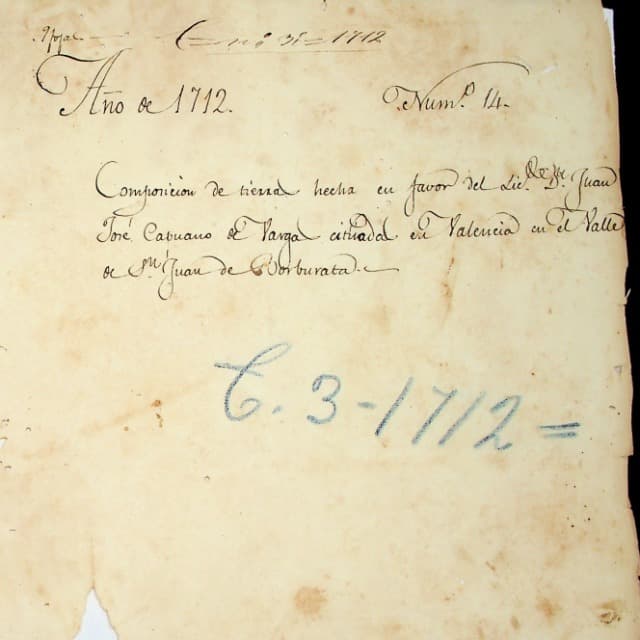 C nº 3 = 1712
Año de 1712. Numº. 14.
Composicion de tierras hecha en favor del Licdo. Dn. Juan
José Capuano de Vargas cituadas en Valencia en el Valle
de Sn. Juan de Borburata.
C. 3 - 1712 =